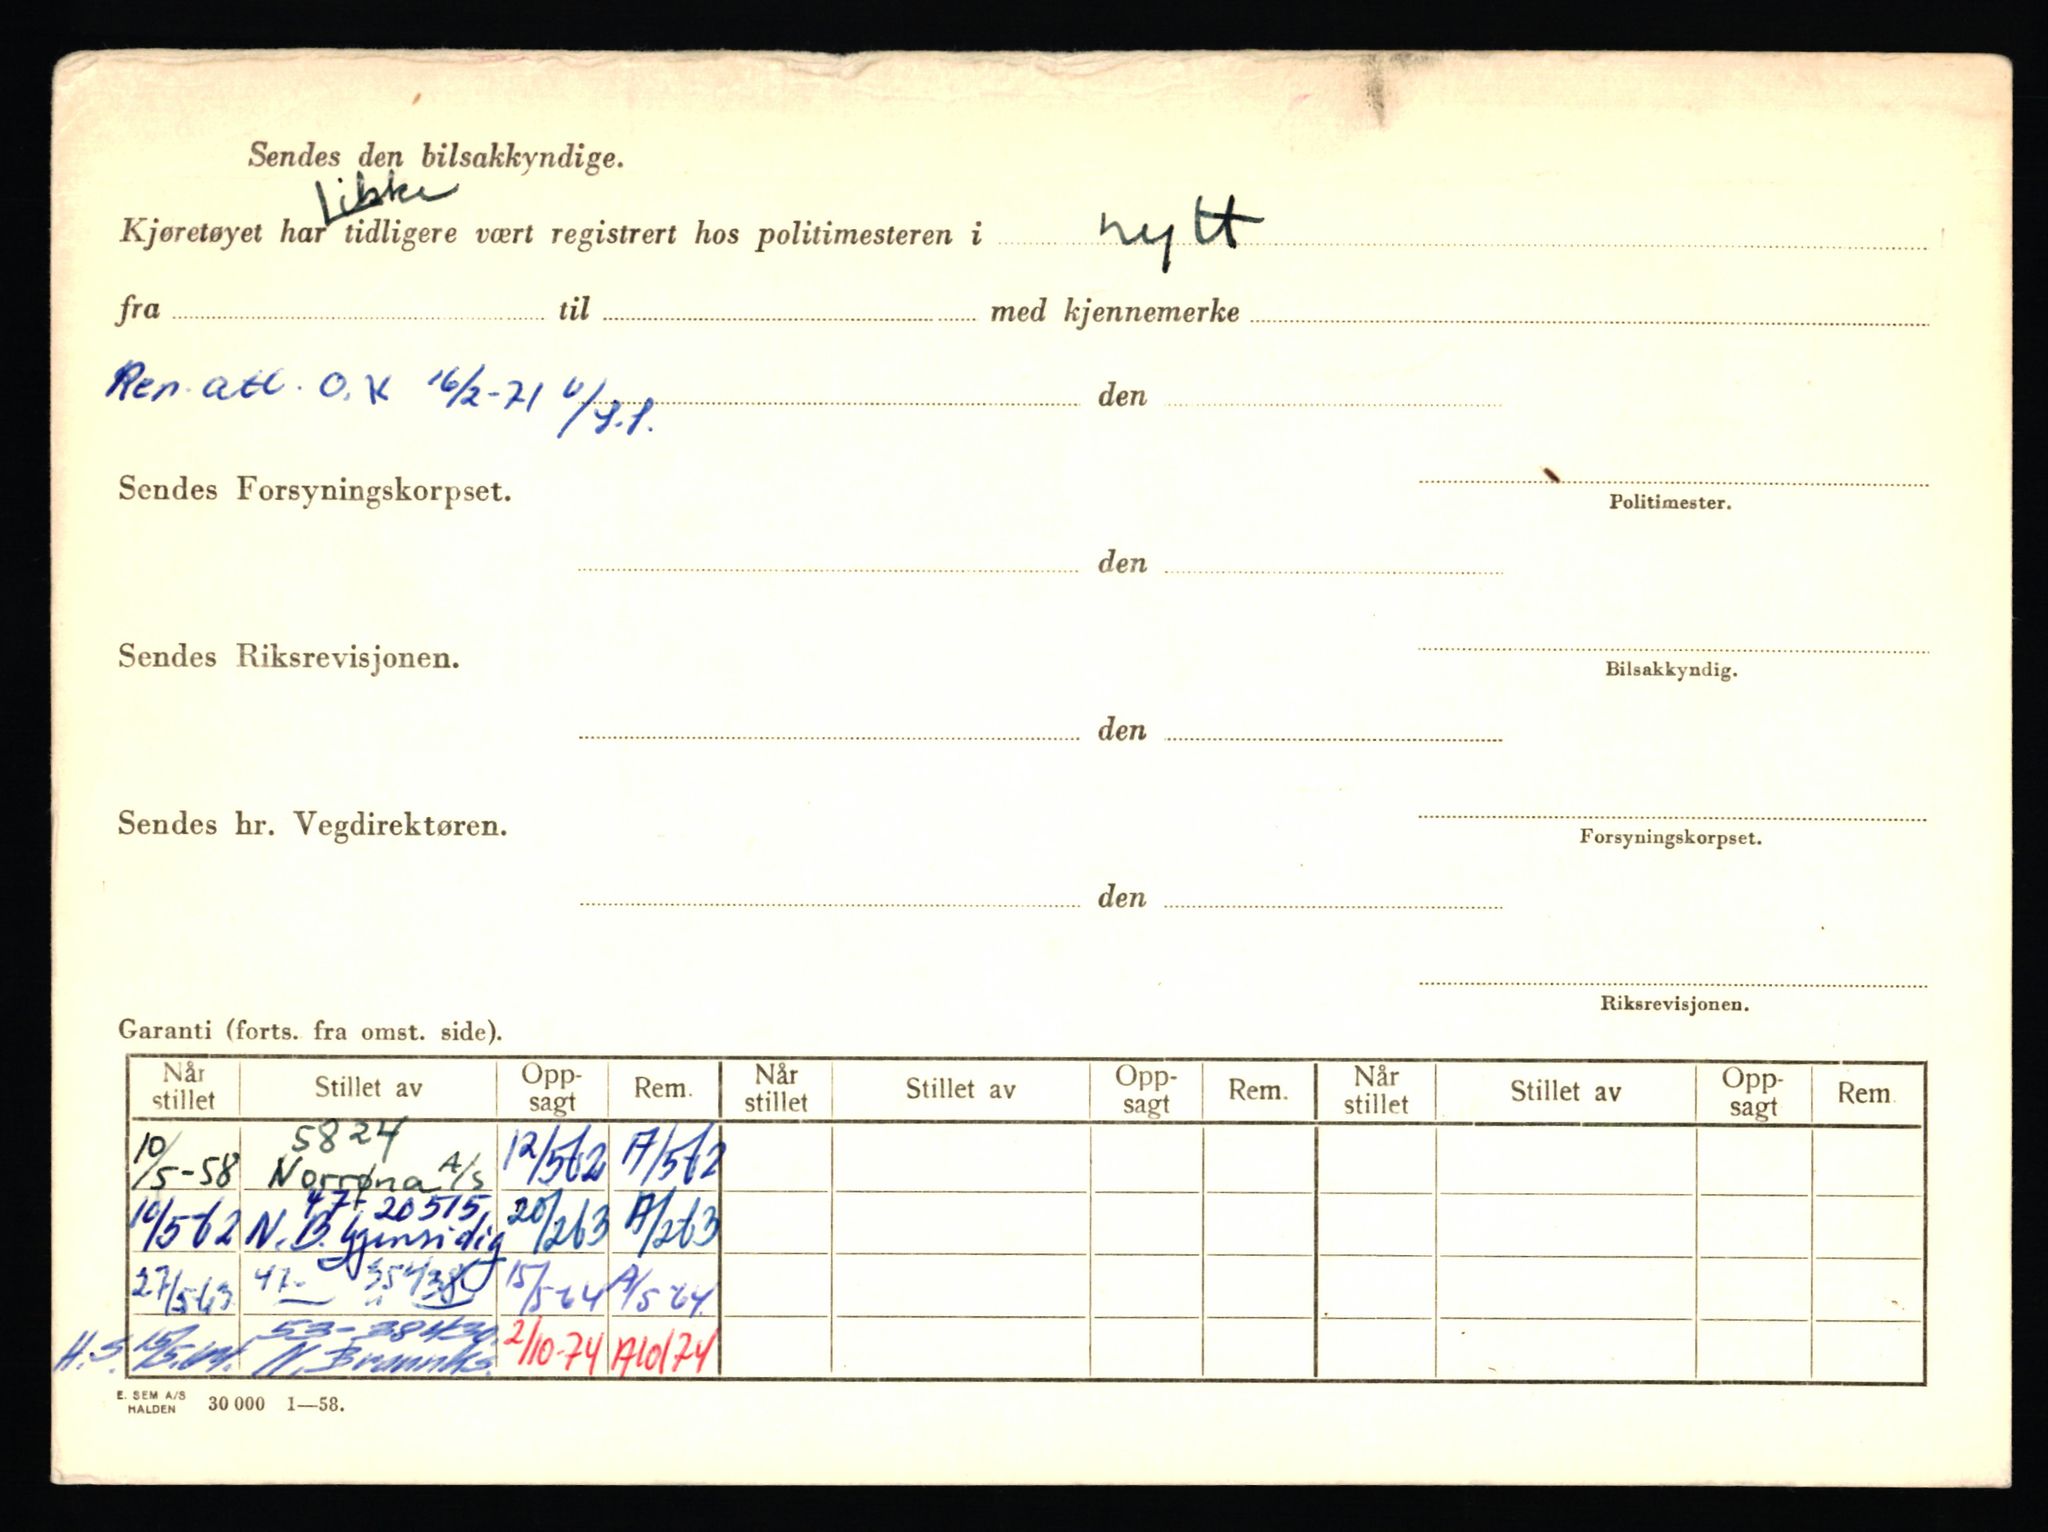 Sendes den bilsakkyndige.
ikke
Kjøretøyet har tidligere vært registrert hos politimesteren i nytt
fra til med kjennemerke
Ren. att. O.K 16/2-71 den
Sendes Forsyningskorpset.
Politimester.
den
Sendes Riksrevisjonen.
Bilsakkyndig.
den
Sendes hr. Vegdirektøren.
Forsyningskorpset.
den
Riksrevisjonen.
Garanti (forts. fra omst. side).
Når stillet Stillet av Opp-sagt Rem. Når stillet Stillet av Opp-sagt Rem. Når stillet Stillet av Opp-sagt Rem
5824
10/5-58 Norrøna A/S 12/562 A/562
47-20515
10/562 N.B. Gjensidig 20/263 A/263
27/563 47- 15/5-64 A/5-64
H.S. 15/5.64. 2/10-74 A10/74
E. SEM A/S
HALDEN 30 000 1—58.